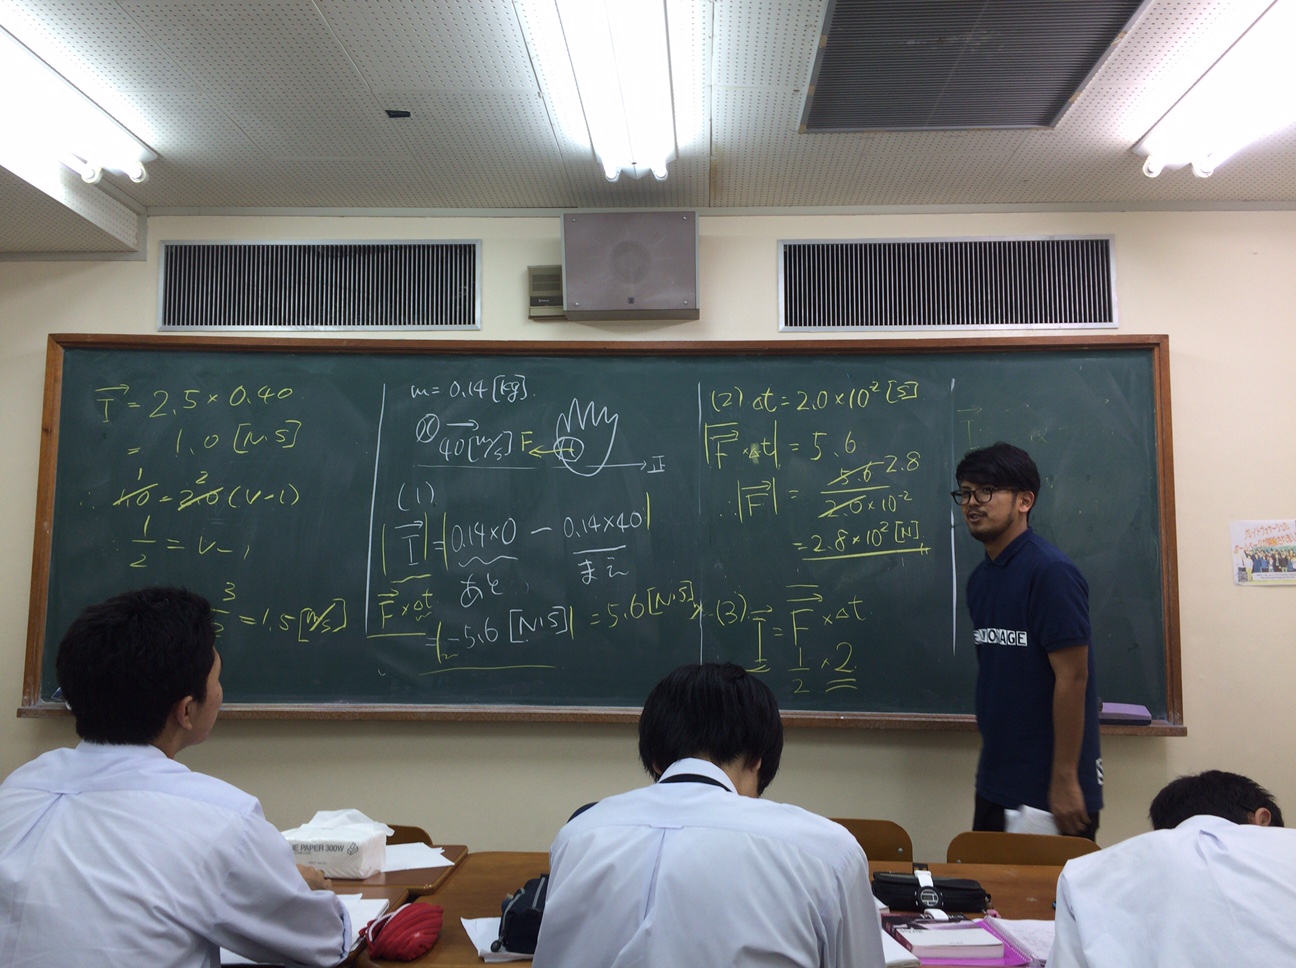 I = 2.5 × 0.40
= 1.0 [N.S]
∴ 10 = 20 (v-1)
1 2
1/2 = v-1
3 = 1.5 [m/s]
m = 0.14 [kg]
40 [m/s] F
正
(1)
|I| = |0.14×0 - 0.14×40|
あと まえ
F × Δt
= |-5.6 [N.S]| = 5.6 [N.S]
(2) Δt = 2.0×10⁻² [s]
|F × Δt| = 5.6
∴ |F| = 5.6 2.8
2.0×10⁻²
= 2.8×10² [N]
(3) I = F × Δt
1/2 × 2
E PAPER 300W